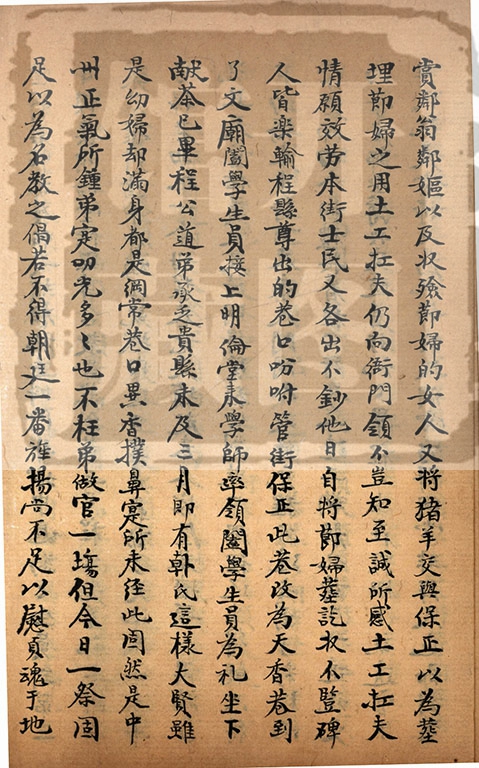 賞鄰翁鄰嫗以及收殮節婦的女人又將猪羊交與保正以為塟
埋節婦之用土工扛夫仍向衙門領不豈知至誠所感土工扛夫
情願效劳本街士民又各出不鈔他日自將節婦塟訖收不竪碑
人皆楽輸程縣尊出的巷口吩咐管街保正此巷改為天香巷到
了文廟闔學生員接上明倫堂來學師率領闔學生員為礼坐下
献茶已畢程公道弟承乏貴縣未及三月即有韩氏這樣大賢雖
是幼婦却滿身都是綱常巷口異香撲鼻寔所未经此固然是中
州正氣所鍾弟寔叨光多〻也不枉弟做官一塲但今日一祭固
足以為名教之倡若不得朝廷一番旌揚尚不足以慰貞魂于地